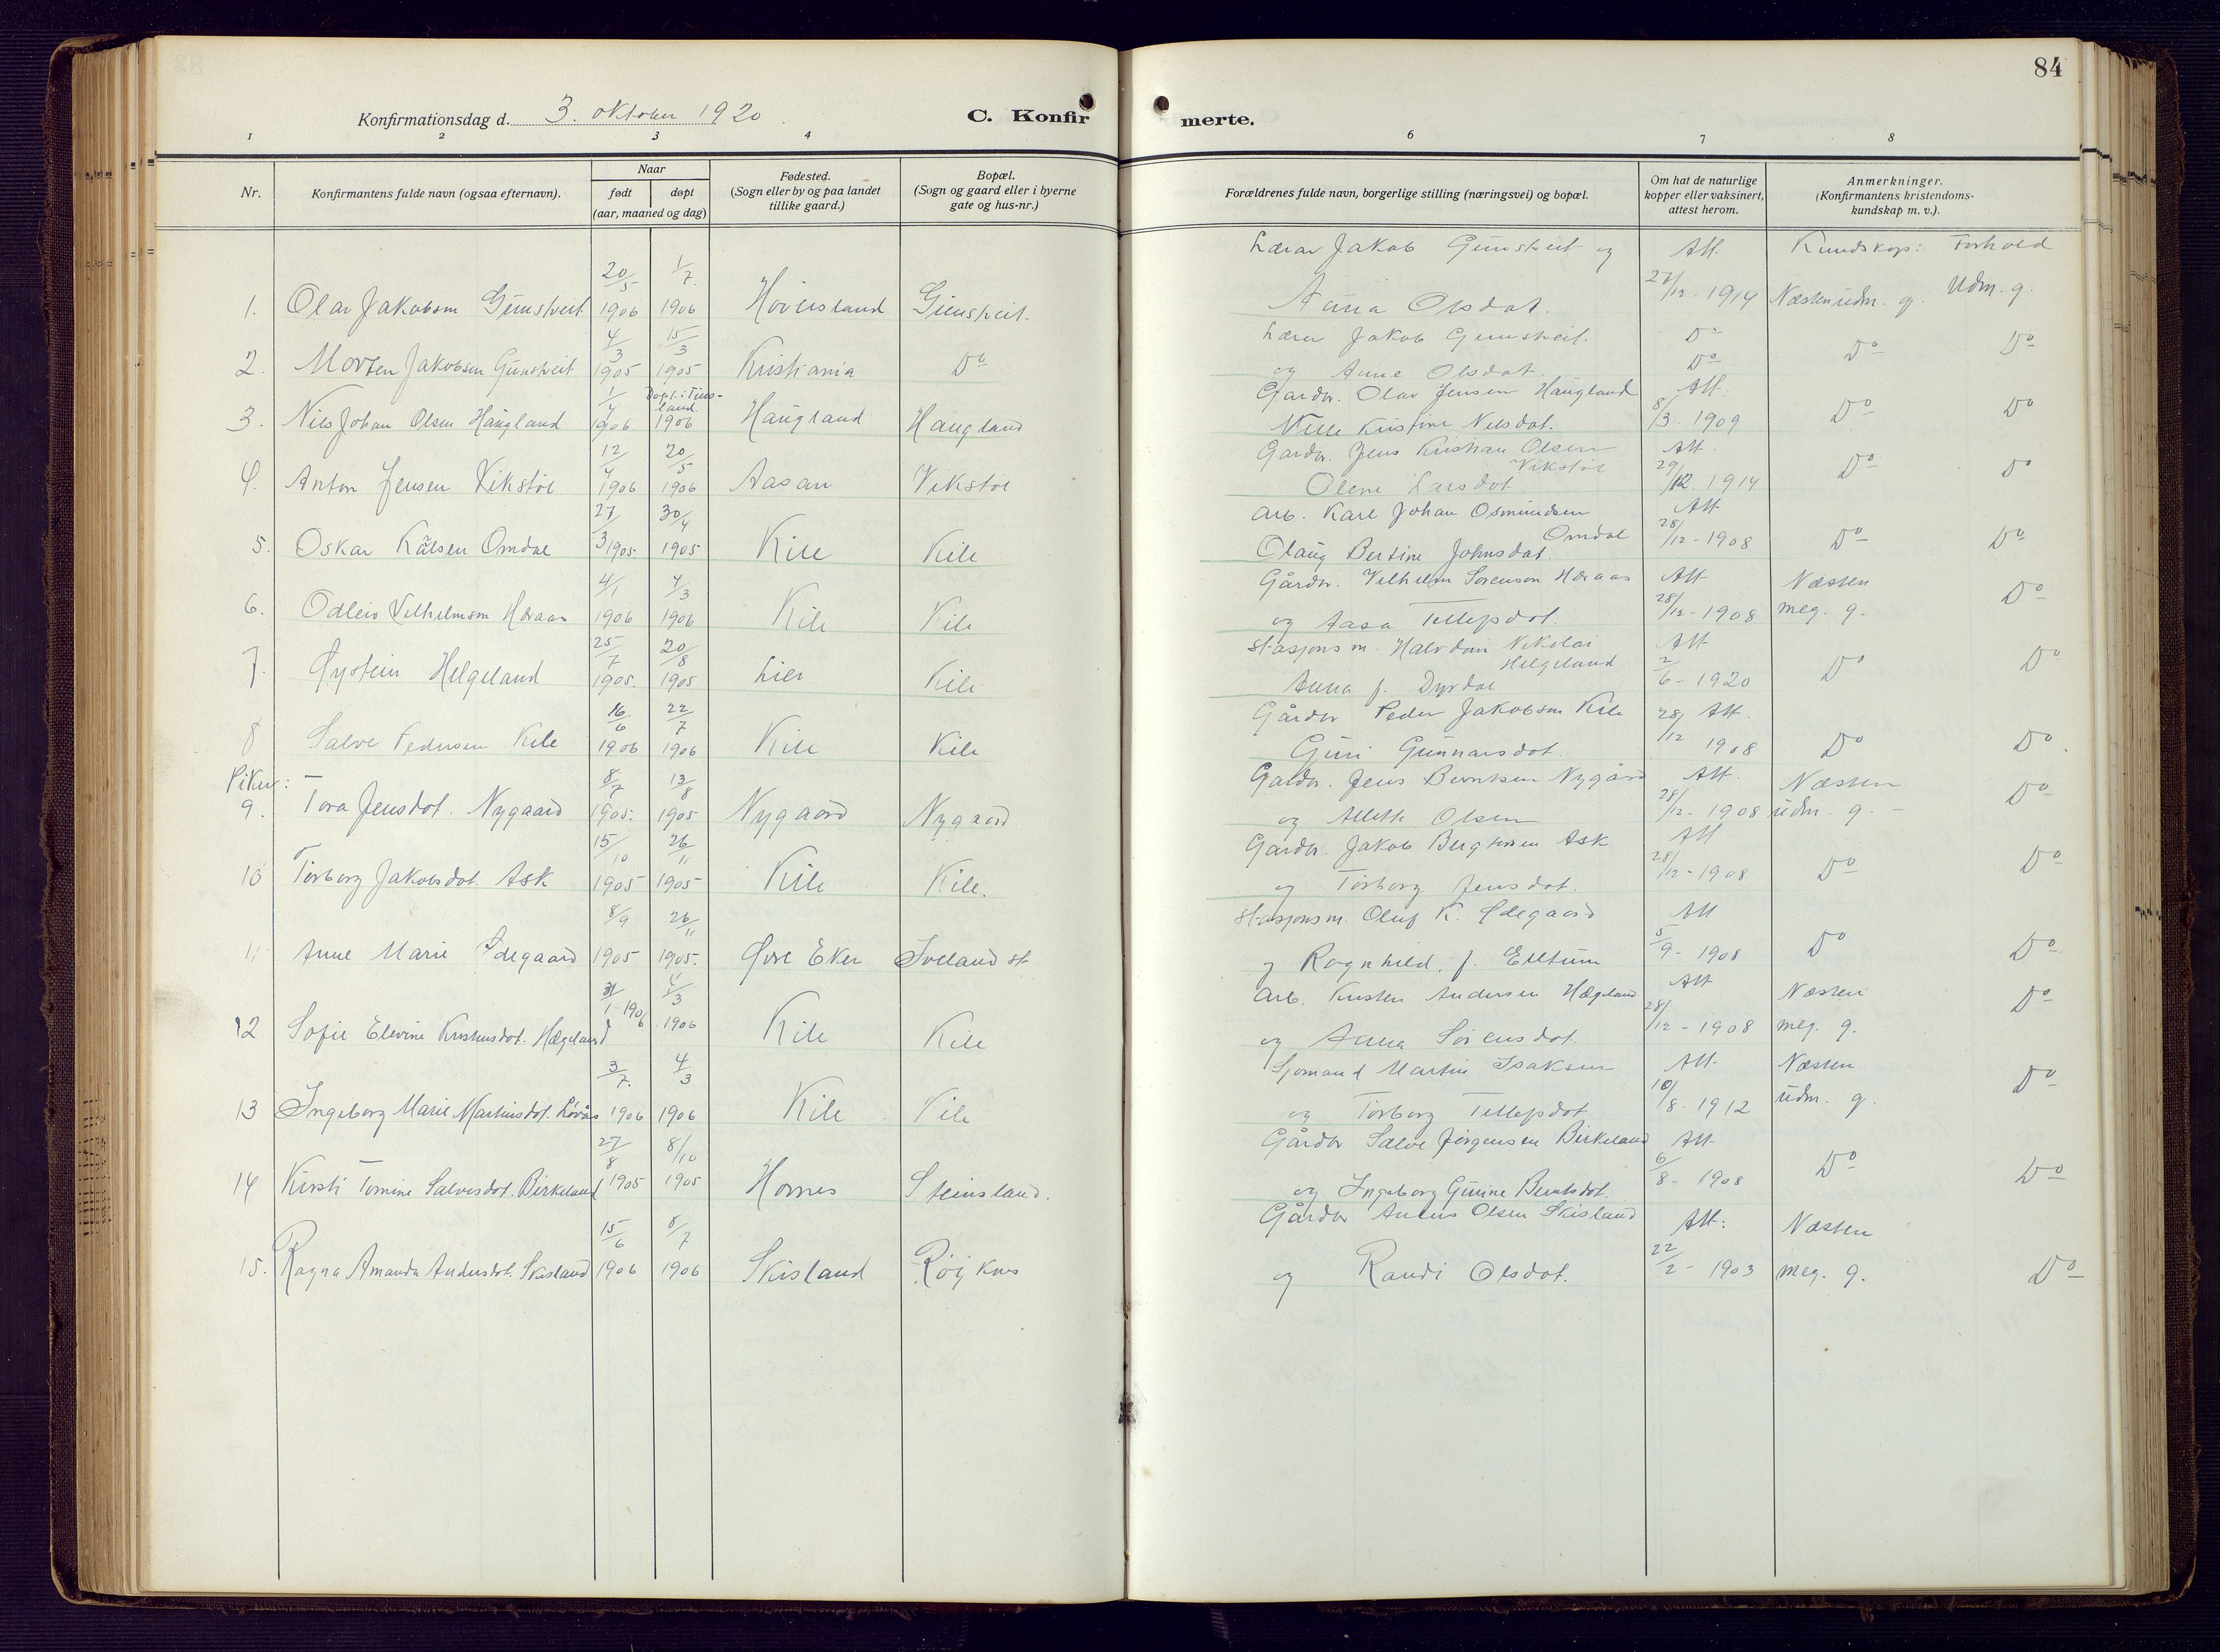 84
Konfirmationsdag d. 3. oktober 1920
C. Konfirmerte.
1 2 3 4 6 7 8
Nr. Konfirmantens fulde navn (ogsaa efternavn). Naar født døpt (aar, maaned og dag) Fødested. (Sogn eller by og paa landet tillike gaard.) Bopæl. (Sogn og gaard eller i byerne gate og hus-nr.) Forældrenes fulde navn, borgerlige stilling (næringsvei) og bopæl. Om hat de naturlige kopper eller vaksinert, attest herom. Anmerkninger. (Konfirmantens kristendoms-kundskap m. v.).
Kundskap: Forhold
1. Olav Jakobsen 20/5 1906 1/7 1906
Lærer Jakob og Anna Olsdat. Att. 1914 Næsten udm. g. Udm. g.
2. Morten Jakobsen 4/3 1905 15/3 1905 Kristiania Do
Lærer Jakob og Anne Olsdat. Do Do Do Do
3. Nils Johan Olsen Haugland 1906 1906 Haugland Haugland
Gardbr. Olav Jensen Haugland Kristine Nilsdat. Att. 8/3 1909 Do Do
4. Anton Jensen Vikstøl 12/4 1906 20/5 1906 Aasan Vikstøl
Gardbr. Jens Kristian Olsen Vikstøl Olene Larsdot. Att. 29/12 1914 Do Do
5. Oskar Omdal 27/3 1905 30/4 1905 Kile Kile
Arb. Karl Johan Osmundsen Omdal Olaug Bertine Johnsdat. Att 28/12 - 1908 Do Do
6. Odleiv Vilhelmsen 4/1 1906 4/3 1906 Kile Kile
Gårdbr. Vilhelm Sørensen og Aasa Tellefsdot. Att 28/12 - 1908 Næsten meg. g. Do
7. Øystein Helgeland 25/7 1905 20/8 1905 Lier Kile
Stasjonsm. Halvdan Nikolai Helgeland Anna f. Dyrdal Att 2/6 - 1920 Do Do
8 Salve Pedersen Kile 16/6 1906 22/7 1906 Kile Kile
Gårdbr Peder Jakobsen Kile Guri Gunnarsdot. 28/12 Att. 1908 Do Do
Piker:
9. Tora Jensdot. Nygaard 8/7 1905 13/8 1905 Nygaard Nygaard
Gardbr. Jens Berntsen Nygård og Olsen Att. 28/12 - 1908 Næsten udm. g. Do
10 Torborg Jakobsdot. Ask 15/10 1905 26/11 1905 Kile Kile.
Gardbr. Jakob Ask og Torborg Jensdot. Att 28/12 - 1908 Do Do
11 Anne Marie Ødegaard 8/9 1905 26/11 1905. Øvre Eker Iveland st
Stasjonsm. Oluf K. Ødegaard og Ragnhild f. Att 5/9 - 1908 Do Do
12 Sofie Elevine Hægeland 31/1 - 1906 4/3 1906 Kile Kile
Arb. Kristen Andersen Hægeland og Anna Sørensdot. Att 28/12 - 1908 Næsten meg. g. Do
13 Ingeborg Marie Martinsdot. Løvås 3/7. 1906 4/3 1906 Kile Kile
Sjømand Martin Isaksen og Torborg Tellefsdot. Att. 10/8 - 1912 Næsten udm. g. Do
14 Kirsti Tomine Salvesdot. Birkeland 27/8 1905 8/10 1905 Hornes Steinsland.
Gårdbr Salve Jørgensen Birkeland og Ingeborg Gurine Berntsdot. Att 6/8 - 1908 Do Do
15. Ragna Amanda Andersdot. Skisland 15/6 1906 8/7 1906 Skisland Røyknes
Gårdbr Anders Olsen Skisland og Randi Olsdot. Att: 22/2 - 1903 Næsten meg. g. Do